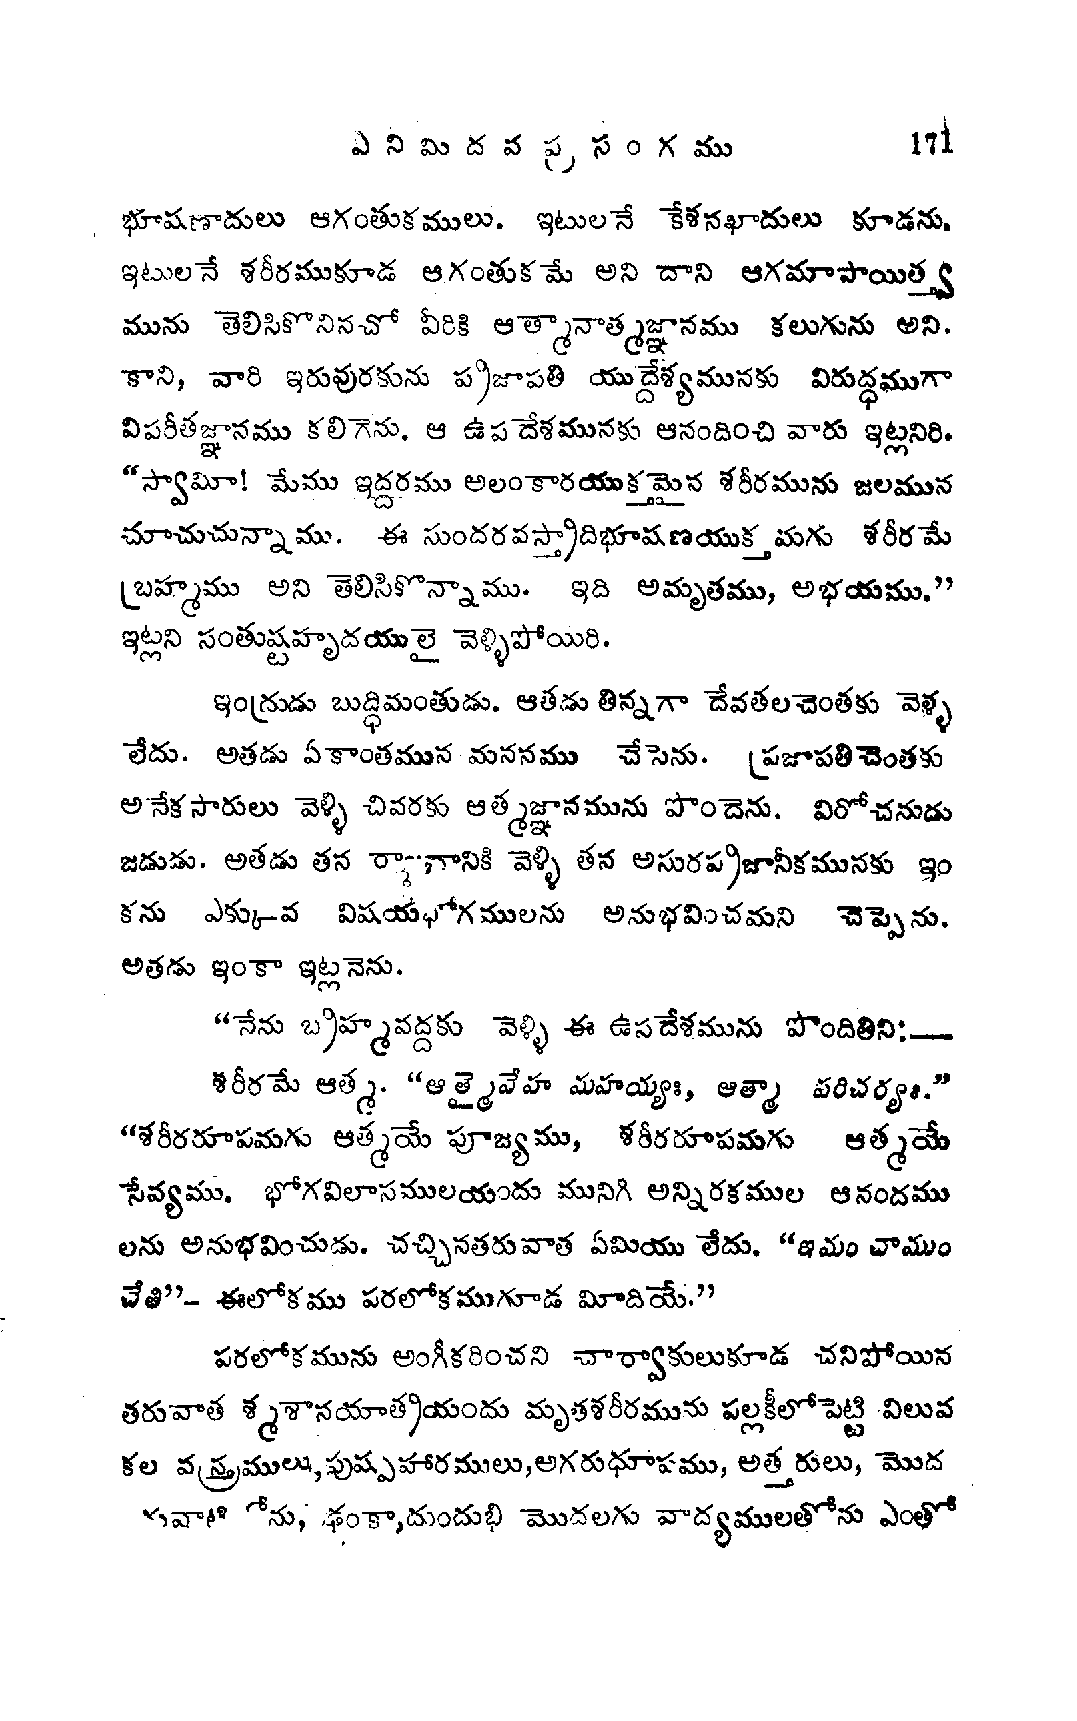 ఎనిమిదవ ప్రసంగము 171
భూషణాదులు ఆగంతుకములు. ఇటులనే కేశనఖాదులు కూడను.
ఇటులనే శరీరముకూడ ఆగంతుకమే అని దాని ఆగమాపాయిత్వ
మును తెలిసికొనినచో వీరికి ఆత్మానాత్మజ్ఞానము కలుగును అని.
కాని, వారి ఇరువురకును ప్రజాపతి యుద్దేశ్యమునకు విరుద్ధముగా
విపరీతజ్ఞానము కలిగెను. ఆ ఉపదేశమునకు ఆనందించి వారు ఇట్లనిరి.
“స్వామీ! మేము ఇద్దరము అలంకారయుక్తమైన శరీరమును జలమున
చూచుచున్నాము. ఈ సుందరవస్త్రాదిభూషణయుక్తమగు శరీరమే
బ్రహ్మము అని తెలిసికొన్నాము. ఇది అమృతము, అభయము.”
ఇట్లని సంతుష్టహృదయులై వెళ్ళిపోయిరి.
ఇంద్రుడు బుద్ధిమంతుడు. ఆతడు తిన్నగా దేవతలచెంతకు వెళ్ళ
లేదు. అతడు ఏకాంతమున మననము చేసెను. ప్రజాపతిచెంతకు
అనేకసారులు వెళ్ళి చివరకు ఆత్మజ్ఞానమును పొందెను. విరోచనుడు
జడుడు. అతడు తన వెళ్ళి తన అసురప్రజానీకమునకు ఇం
కను ఎక్కువ విషయభోగములను అనుభవించవమని చెప్పెను.
అతడు ఇంకా ఇట్లనెను.
“నేను బ్రహ్మవద్దకు వెళ్ళి ఈ ఉపదేశమును పొందితిని:—
శరీరమే ఆత్మ. “ఆత్మైవేహ మహయ్యః, ఆత్మా పరిచర్యః.”
“శరీరరూపమగు ఆత్మయే పూజ్యము, శరీరరూపమగు ఆత్మయే
సేవ్యము. భోగవిలాసములయందు మునిగి అన్నిరకముల ఆనందము
లను అనుభవించుడు. చచ్చినతరువాత ఏమియు లేదు. “ఇమం చాముం
చేతి”- ఈలోకము పరలోకముగూడ మీదియే.”
పరలోకమును అంగీకరించని చార్వాకులుకూడ చనిపోయిన
తరువాత శ్మశానయాత్రయందు మృతశరీరమును పల్లకీలోపెట్టి విలువ
కల వస్త్రములు,పుష్పహారములు,అగరుధూపము, అత్తరులు, మొద
ఢంకా,దుందుభి మొదలగు వాద్యములతోను ఎంతో